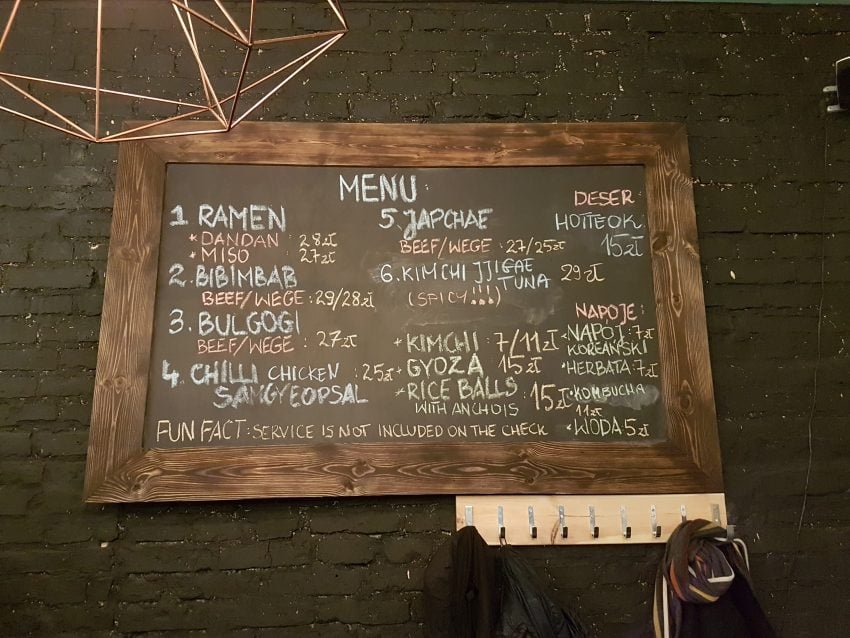 MENU:
1. RAMEN
* DANDAN : 28zł
* MISO : 27zł
2. BIBIMBAB
BEEF/WEGE : 29/28zł
3. BULGOGI
BEEF/WEGE : 27zł
4. CHILLI CHICKEN : 25zł
SAMGYEOPSAL
5. JAPCHAE
BEEF/WEGE : 27/25zł
6. KIMCHI JJIGAE
TUNA 29zł
(SPICY!!!)
+ KIMCHI : 7/11zł
+ GYOZA 15zł
+ RICE BALLS 15zł
WITH ANCHOIS
DESER:
HOTTEOK
15zł
NAPOJE:
* NAPÓJ : 7zł
KOREAŃSKI
* HERBATA 7zł
* KOMBUCHA
11zł
* WODA 5zł
FUN FACT : SERVICE IS NOT INCLUDED ON THE CHECK